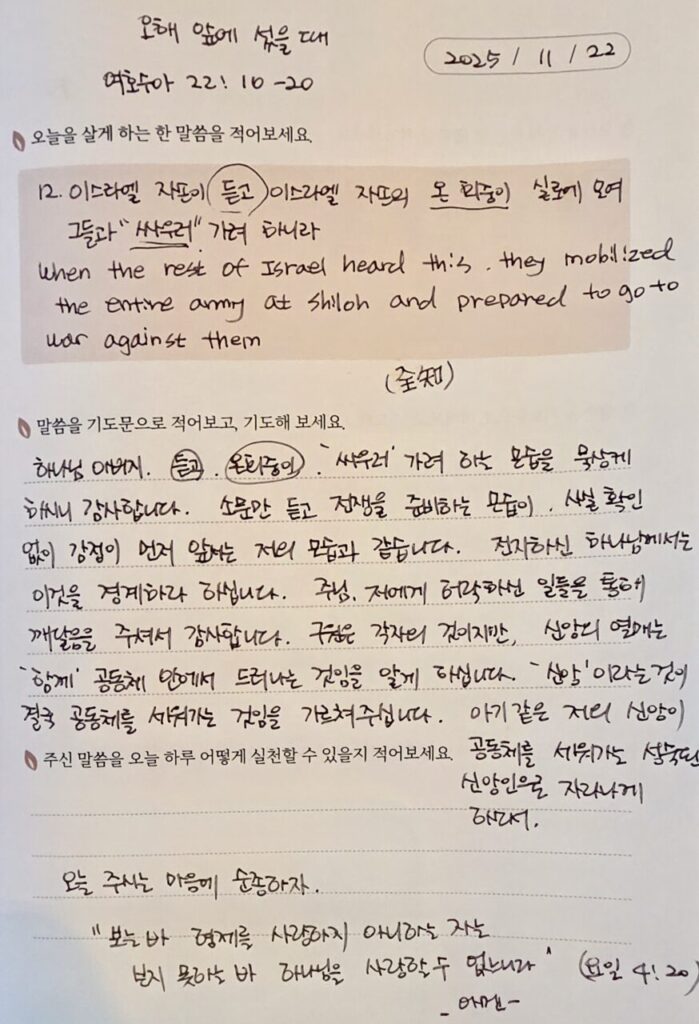 오해 앞에 섰을 때
2025 / 11 / 22
여호수아 22:10-20
오늘을 살게 하는 한 말씀을 적어보세요.
12. 이스라엘 자손이 듣고 이스라엘 자손의 온 회중이 실로에 모여
그들과 "싸우러" 가려 하니라
when the rest of Israel heard this. they mobilized
the entire army at shiloh and prepared to go to
war against them
(全知)
말씀을 기도문으로 적어보고, 기도해 보세요.
하나님 아버지. 듣고. 온회중이. '싸우러' 가려 하는 모습을 묵상케
하시니 감사합니다. 소문만 듣고 전쟁을 준비하는 모습이. 사실 확인
없이 감정이 먼저 앞서는 저의 모습과 같습니다. 전지하신 하나님께서는
이것을 경계하라 하십니다. 주님. 저에게 허락하신 일들을 통해
깨달음을 주셔서 감사합니다. 구원은 각자의 것이지만, 신앙의 열매는
'함께' 공동체 안에서 드러나는 것임을 알게 하십니다. '신앙'이라는것이
결국 공동체를 세워가는 것임을 가르쳐주십니다. 아기 같은 저의 신앙이
주신 말씀을 오늘 하루 어떻게 실천할 수 있을지 적어보세요.
공동체를 세워가는 성숙된
신앙인으로 자라나게
하소서.
오늘 주시는 마음에 순종하자.
"보는바 형제를 사랑하지 아니하는 자는
보지 못하는 바 하나님을 사랑할 수 없느니라" (요일 4:20)
- 아멘 -